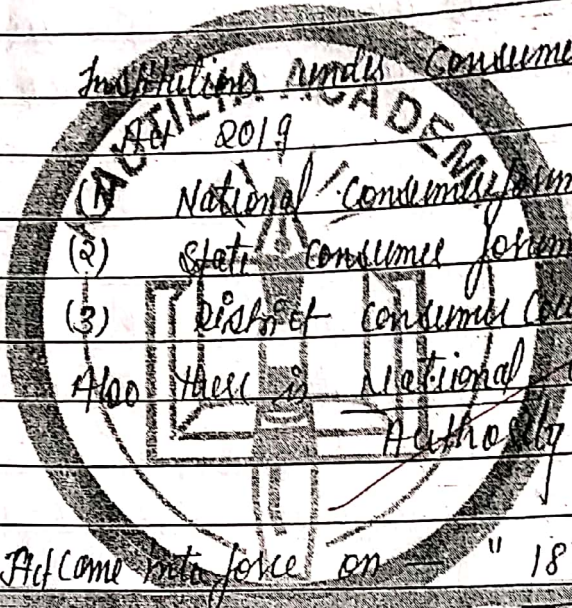 Institutions under Consume
Act 2019
(1) National Consumer forum
(2) State consumer forum
(3) District consumer Cou
Also there is National
Authority
Act Come into force on — " 18
KAUTILYA ACADEMY